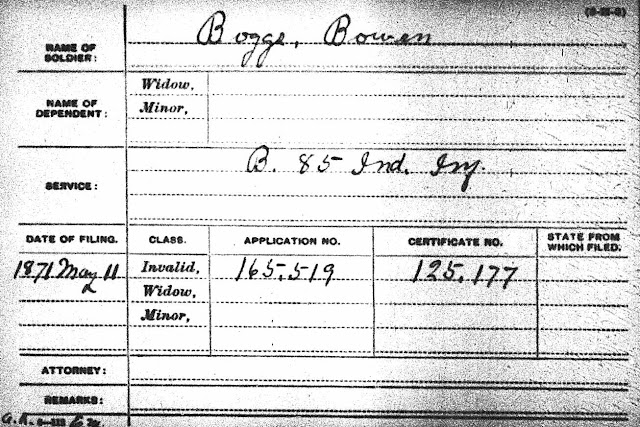 Boggs, Bowen
NAME OF
SOLDIER:
NAME OF
DEPENDENT:
Widow,
Minor,
SERVICE:
B. 85 Ind. Inf.
DATE OF FILING.
CLASS.
APPLICATION NO.
CERTIFICATE NO.
STATE FROM
WHICH FILED.
1871 May 11
Invalid,
165.519
125.177
Widow,
Minor,
ATTORNEY:
REMARKS: